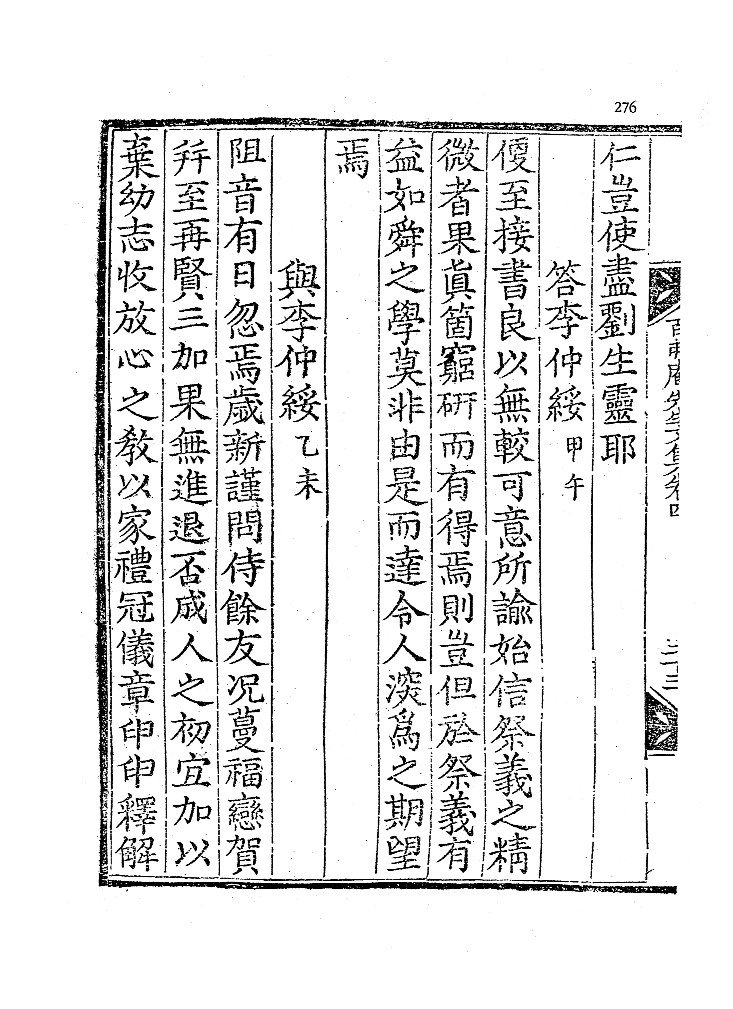 276
先生文集卷四
仁豈使盡劉生靈耶
答李仲綏 甲午
至接書良以無較可意所諭始信祭義之精
微者果眞箇窮硏而有得焉則豈但於祭義有
益如舜之學莫非由是而達令人深爲之期望
焉
與李仲綏 乙未
阻音有日忽焉歲新謹問侍餘友况蔓福戀賀
幷至再賢三加果無進退否成人之初宜加以
棄幼志收放心之敎以家禮冠儀章申申釋解